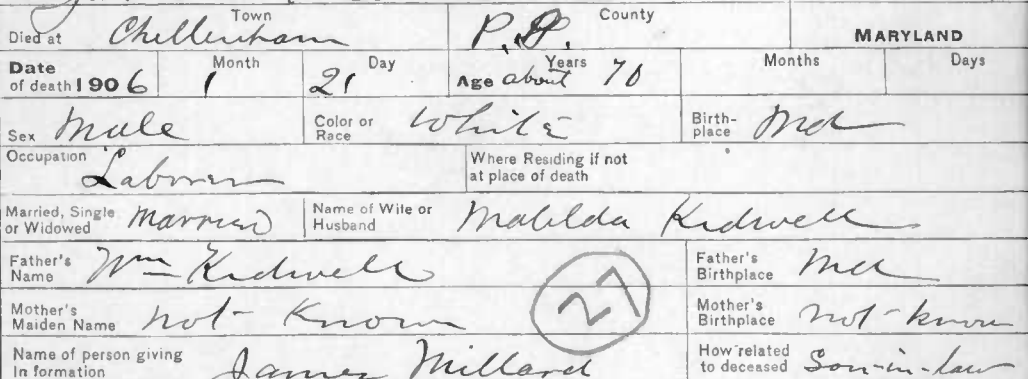 Town County
Died at Chellenham P. G. MARYLAND
Date of death 1906 Month 1 Day 21 Age about 70 Years Months Days
Sex Male Color or Race White Birth-place Md
Occupation Laborer Where Residing if not at place of death
Married, Single or Widowed Married Name of Wife or Husband Matilda Kidwell
Father's Name Wm Kidwell Father's Birthplace Md
27
Mother's Maiden Name not-Known Mother's Birthplace not-known
Name of person giving In formation James Millard How related to deceased Son-in-law